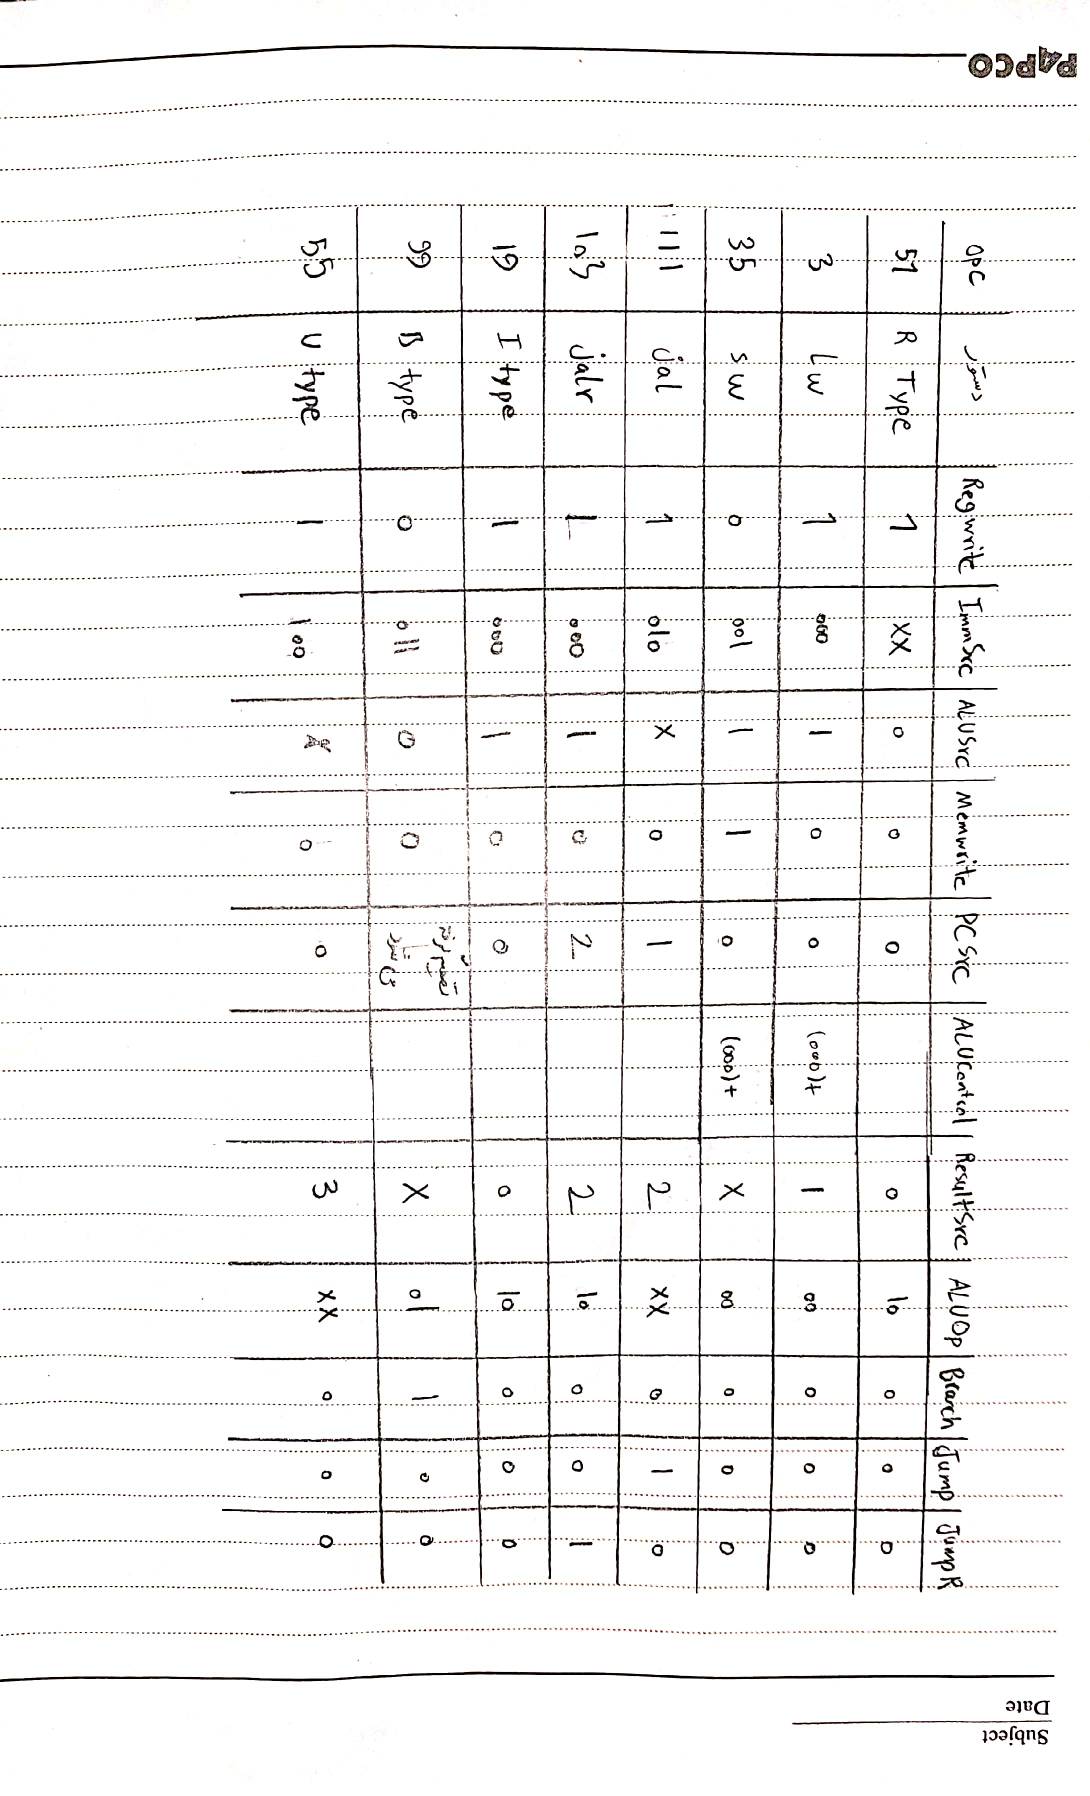 Subject
Date
PAPCO
opc دستور Regwrite ImmSrc ALUSrc Memwrite PCSrc ALUControl ResultSrc ALUOp Branch Jump JumpR
51 R Type 1 XX 0 0 0 0 10 0 0 0
3 Lw 1 000 1 0 0 (000)+ 1 00 0 0 0
35 sw 0 001 1 1 0 (000)+ X 00 0 0 0
111 jal 1 010 X 0 1 2 XX 0 1 0
103 jalr 1 000 1 0 2 2 10 0 0 1
19 I type 1 000 1 0 0 0 10 0 0 0
99 B type 0 011 0 0 تصمیم گرفته می شود X 01 1 0 0
55 U type 1 100 X 0 0 3 XX 0 0 0